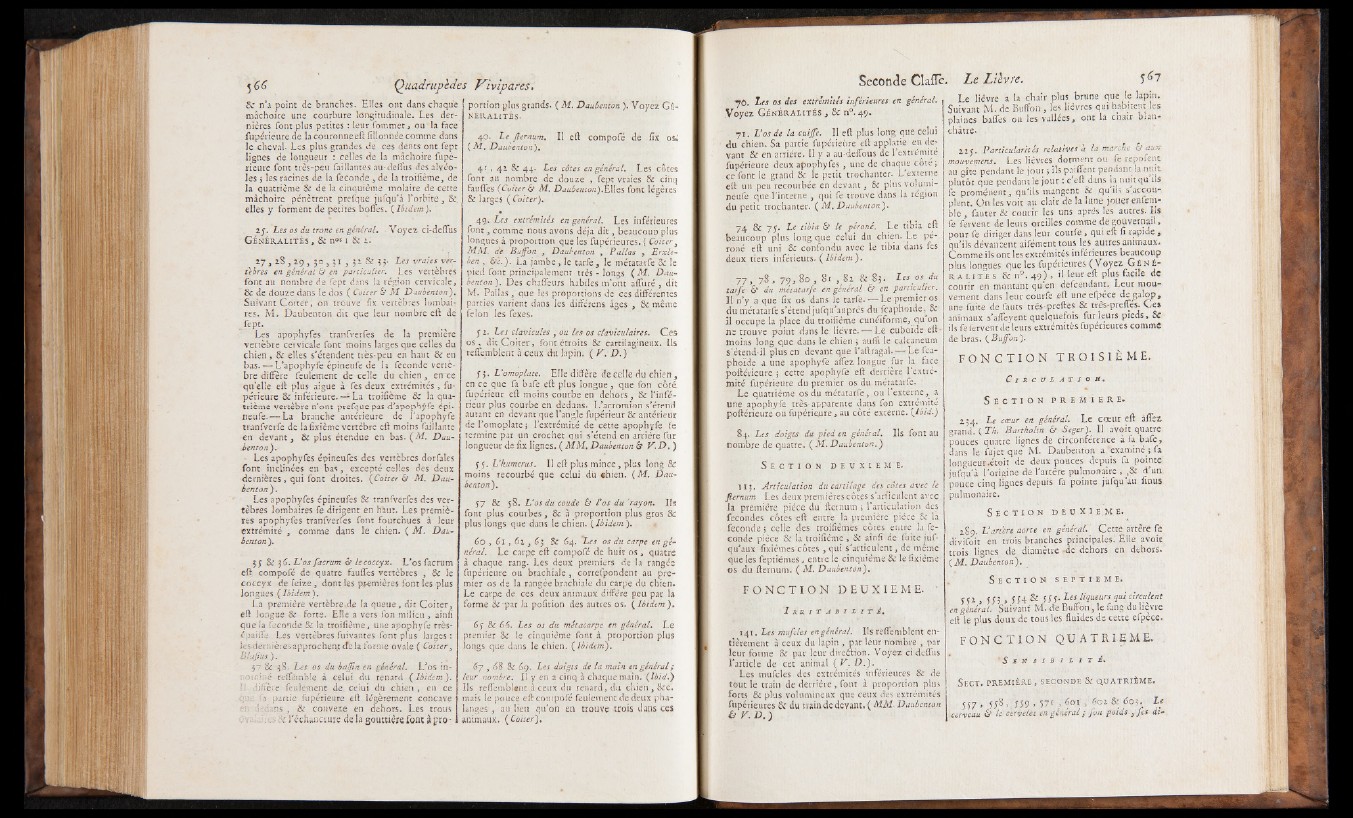 566 Quadrupèdes Vivipares.
& n'a point de branches. Elles ont dans chaque
mâchoire une courbure longitudinale. Les der-
nières sont plus petites : leur sommet, ou la face
supérieure de la couronne est sillonnée comme dans
le cheval. Les plus grandes de ces dents ont sept
lignes de longueur : celles de la mâchoire supé-
rieure sont très-peu saillantes au-dessus des alvéo-
les ; les racines de la seconde, de la troisième, de
la quatrième & de la cinquième molaire de cette
mâchoire pénètrent presque jusqu'à l'orbite, &
elles y forment de petites bosses. (Ibidem).
25. Les os du tronc en général. Voyez ci-dessus
GÉNÉRALITÉS, & nos 1 & 2.
27, 28, 29, 30, 31, 32 & 33. Les vraies ver-
tèbres en général & en particulier. Les vertèbres
sont au nombre de sept dans la région cervicale,
& de douze dans le dos (Coiter & M. Daubenton).
Suivant Coiter, on trouve six vertèbres lombai-
res. M. Daubenton dit que leur nombre est de
sept.
Les apophyses transverses de la première
vertèbre cervicale sont moins larges que celles du
chien, & elles s'étendent très-peu en haut & en
bas. — L'apophyse épineuse de la seconde vertè-
bre diffère seulement de celle du chien, en ce
qu'elle est plus aigue à ses deux extrémités, su-
périeure & inférieure. — La troisième & la qua-
trième vertèbre n'ont presque pas d'apophyse épi-
neuse. — La branche antérieure de l'apophyse
transverse de la sixième vertèbre est moins saillante
en devant, & plus étendue en bas. (M. Dau-
benton).
Les apophyses épineuses des vertèbres dorsales
sont inclinées en bas, excepté celles des deux
dernières, qui sont droites. (Coiter & M. Dau-
benton).
Les apophyses épineuses & transverses des ver-
tèbres lombaires se dirigent en haut. Les premiè-
res apophyses transverses sont fourchues à leur
extrémité, comme dans le chien. (M. Dau-
benton).
35 & 36. L'os sacrum & le coccyx. L'os sacrum
est composé de quatre fausses vertèbres, & le
coccyx de seize, dont les premières sont les plus
longues (Ibidem).
La première vertèbre de la queue, dit Coiter,
est longue & forte. Elle a vers son milieu, ainsi
que la seconde & la troisième, une apophyse très-
épaisse. Les vertèbres suivantes sont plus larges :
les dernières approchent de la forme ovale (Coiter,
Blasius).
37 & 38. Les os du bassin en général. L'os in-
nominé ressemble à celui du renard (Ibidem).
Il diffère seulement de celui du chien, en ce
que sa partie supérieure est légèrement concave
en dedans, & convexe en dehors. Les trous
ovalaires & l'échancrure de la gouttière sont à pro-
portion plus grands. (M. Daubenton). Voyez GÉ-
NÉRALITÉS.
40. Le sternum. Il est composé de six os.
(M. Daubenton).
41, 42 & 44. Les côtes en général. Les côtes
sont au nombre de douze, sept vraies & cinq
fausses (Coiter & M. Daubenton). Elles sont légères
& larges (Coiter).
49. Les extrémités en général. Les inférieures
sont, comme nous avons déja dit, beaucoup plus
longues à proportion que les supérieures. (Coiter,
MM. de Buffon, Daubenton, Pallas, Erxle-
ben, &c.). La jambe, le tarse, le métatarse & le
pied sont principalement très-longs (M. Dau-
benton). Des chasseurs habiles m'ont assuré, dit
M. Pallas, que les proportions de ces différentes
parties varient dans les différens âges, & même
selon les sexes.
52. Les clavicules, ou les os claviculaires. Ces
os, dit Coiter, sont étroits & cartilagineux. Ils
ressemblent à ceux du lapin. (V. D.)
53. L'omoplate. Elle diffère de celle du chien,
en ce que sa base est plus longue, que son côté
supérieur est moins courbe en dehors, & l'infé-
rieur plus courbe en dedans. L'acromion s'étend
autant en devant que l'angle supérieur & antérieur
de l'omoplate ; l'extrémité de cette apophyse se
termine par un crochet qui s'étend en arrière sur
longueur de six lignes. (MM. Daubenton & V. D.)
55. L'humerus. Il est plus mince, plus long &
moins recourbé que celui du chien. (M. Dau-
benton).
57 & 58. L'os du coude & l'os du rayon. Ils
sont plus courbes, & à proportion plus gros &
plus longs que dans le chien. (Ibidem).
60, 61, 62, 63 & 64. Les os du carpe en gé-
néral. Le carpe est composé de huit os, quatre
à chaque rang. Les deux premiers de la rangée
supérieure ou brachiale, correspondent au pre-
mier os de la rangée brachiale du carpe du chien.
Le carpe de ces deux animaux diffère peu par la
forme & par la position des autres os. (Ibidem).
65 & 66. Les os du métacarpe en général. Le
premier & le cinquième sont à proportion plus
longs que dans le chien. (Ibidem).
67, 68 & 69. Les doigts de la main en général ;
leur nombre. Il y en a cinq à chaque main. (Ibid.)
Ils ressemblent à ceux du renard, du chien, &c.
mais le pouce est composé seulement de deux pha-
langes, au lieu qu'on en trouve trois dans ces
animaux. (Coiter).
Seconde Classe. Le Lièvre. 567
70. Les os des extrémités inférieures en général.
Voyez GÉNÉRALITÉS, & n°. 49.
71. L'os de la cuisse. Il est plus long que celui
du chien. Sa partie supérieure est applatie en de-
vant & en arrière. Il y a au-dessous de l'extrémité
supérieure deux apophyses, une de chaque côté ;
ce sont le grand & le petit trochanter. L'externe
est un peu recourbée en devant, & plus volumi-
neuse que l'interne, qui se trouve dans la région
du petit trochanter. (M. Daubenton).
74 & 75. Le tibia & le péroné. Le tibia est
beaucoup plus long que celui du chien. Le pé-
roné est uni & confondu avec le tibia dans ses
deux tiers inférieurs. (Ibidem).
77, 78, 79, 80, 81, 82 & 83. Les os du
tarse & du métatarse en général & en particulier.
Il n'y a que six os dans le tarse. — Le premier os
du métatarse s'étend jusqu'auprès du scaphoïde, &
il occupe la place du troisième cunéiforme, qu'on
ne trouve point dans le lièvre. — Le cuboïde est
moins long que dans le chien ; aussi le calcaneum
s'étend-il plus en devant que l'astragal. — Le sca-
phoïde a une apophyse assez longue sur la face
postérieure ; cette apophyse est derrière l'extré-
mité supérieure du premier os du métatarse.
Le quatrième os du métatarse, ou l'externe, a
une apophyse très-apparente dans son extrémité
postérieure ou supérieure, au côté externe. (Ibid.)
84. Les doigts du pied en général. Ils sont au
nombre de quatre. (M. Daubenton.)
SECTION DEUXIEME.
113. Articulation du cartilage des côtes avec le
sternum. Les deux premières côtes s'articulent avec
la première pièce du sternum ; l'articulation des
secondes côtes est entre la première pièce & la
seconde ; celle des troisièmes côtes entre la se-
conde pièce & la troisième, & ainsi de suite jus-
qu'aux sixièmes côtes, qui s'articulent, de même
que les septièmes, entre le cinquième & le sixième
os du sternum. (M. Daubenton).
FONCTION DEUXIEME.
IRRITABILITÉ.
141. Les muscles en général. Ils ressemblent en-
tièrement à ceux du lapin, par leur nombre, par
leur forme & par leur direction. Voyez ci-dessus
l'article de cet animal (V. D.).
Les muscles des extrémités inférieures & de
tout le train de derrière, sont à proportion plus
forts & plus volumineux que ceux des extrémités
supérieures & du train de devant. (MM. Daubenton
& V. D.)
Le lièvre a la chair plus brune que le lapin.
Suivant M. de Buffon, les lièvres qui habitent les
plaines basses ou les vallées, ont la chair blan-
châtre.
225. Particularités relatives à la marche & aux
mouvemens. Les lièvres dorment ou se reposent
au gîte pendant le jour ; ils paissent pendant la nuit
plutôt que pendant le jour : c'est dans la nuit qu'ils
se promènent, qu'ils mangent & qu'ils s'accou-
plent. On les voit au clair de la lune jouer ensem-
ble, sauter & courir les uns après les autres. Ils
se servent de leurs oreilles comme de gouvernail,
pour se diriger dans leur course, qui est si rapide,
qu'ils dévancent aisément tous les autres animaux.
Comme ils ont les extrémités inférieures beaucoup
plus longues que les supérieures (Voyez GÉNÉ-
RALITÉS & n°. 49), il leur est plus facile de
courir en montant qu'en descendant. Leur mou-
vement dans leur course est une espèce de galop,
une suite de sauts très-prestes & très-pressés. Ces
animaux s'asseyent quelquefois sur leurs pieds, &
ils se servent de leurs extrémités supérieures comme
de bras. (Buffon).
FONCTION TROISIÈME.
CIRCULATION.
SECTION PREMIERE.
234. Le cœur en général. Le cœur est assez
grand. (Th. Bartholin & Seger). Il avoit quatre
pouces quatre lignes de circonférence à sa base,
dans le sujet que M. Daubenton a examiné ; sa
longueur étoit de deux pouces depuis sa pointe
jusqu'à l'origine de l'artère pulmonaire, & d'un
pouce cinq lignes depuis sa pointe jusqu'au sinus
pulmonaire.
SECTION DEUXIEME.
289. L'artère aorte en général. Cette artère se
divisoit en trois branches principales. Elle avoit
trois lignes de diamètre de dehors en dehors.
(M. Daubenton).
SECTION SEPTIEME.
552, 553, 554 & 555. Les liqueurs qui circulent
en général. Suivant M. de Buffon, le sang du lièvre
est le plus doux de tous les fluides de cette espèce.
FONCTION QUATRIEME.
SENSIBILITÉ.
SECT. PREMIÈRE, SECONDE & QUATRIÈME.
557, 558, 559, 571, 601, 602 & 603. Le
cerveau & le cervelet en général ; son poids, ses di-